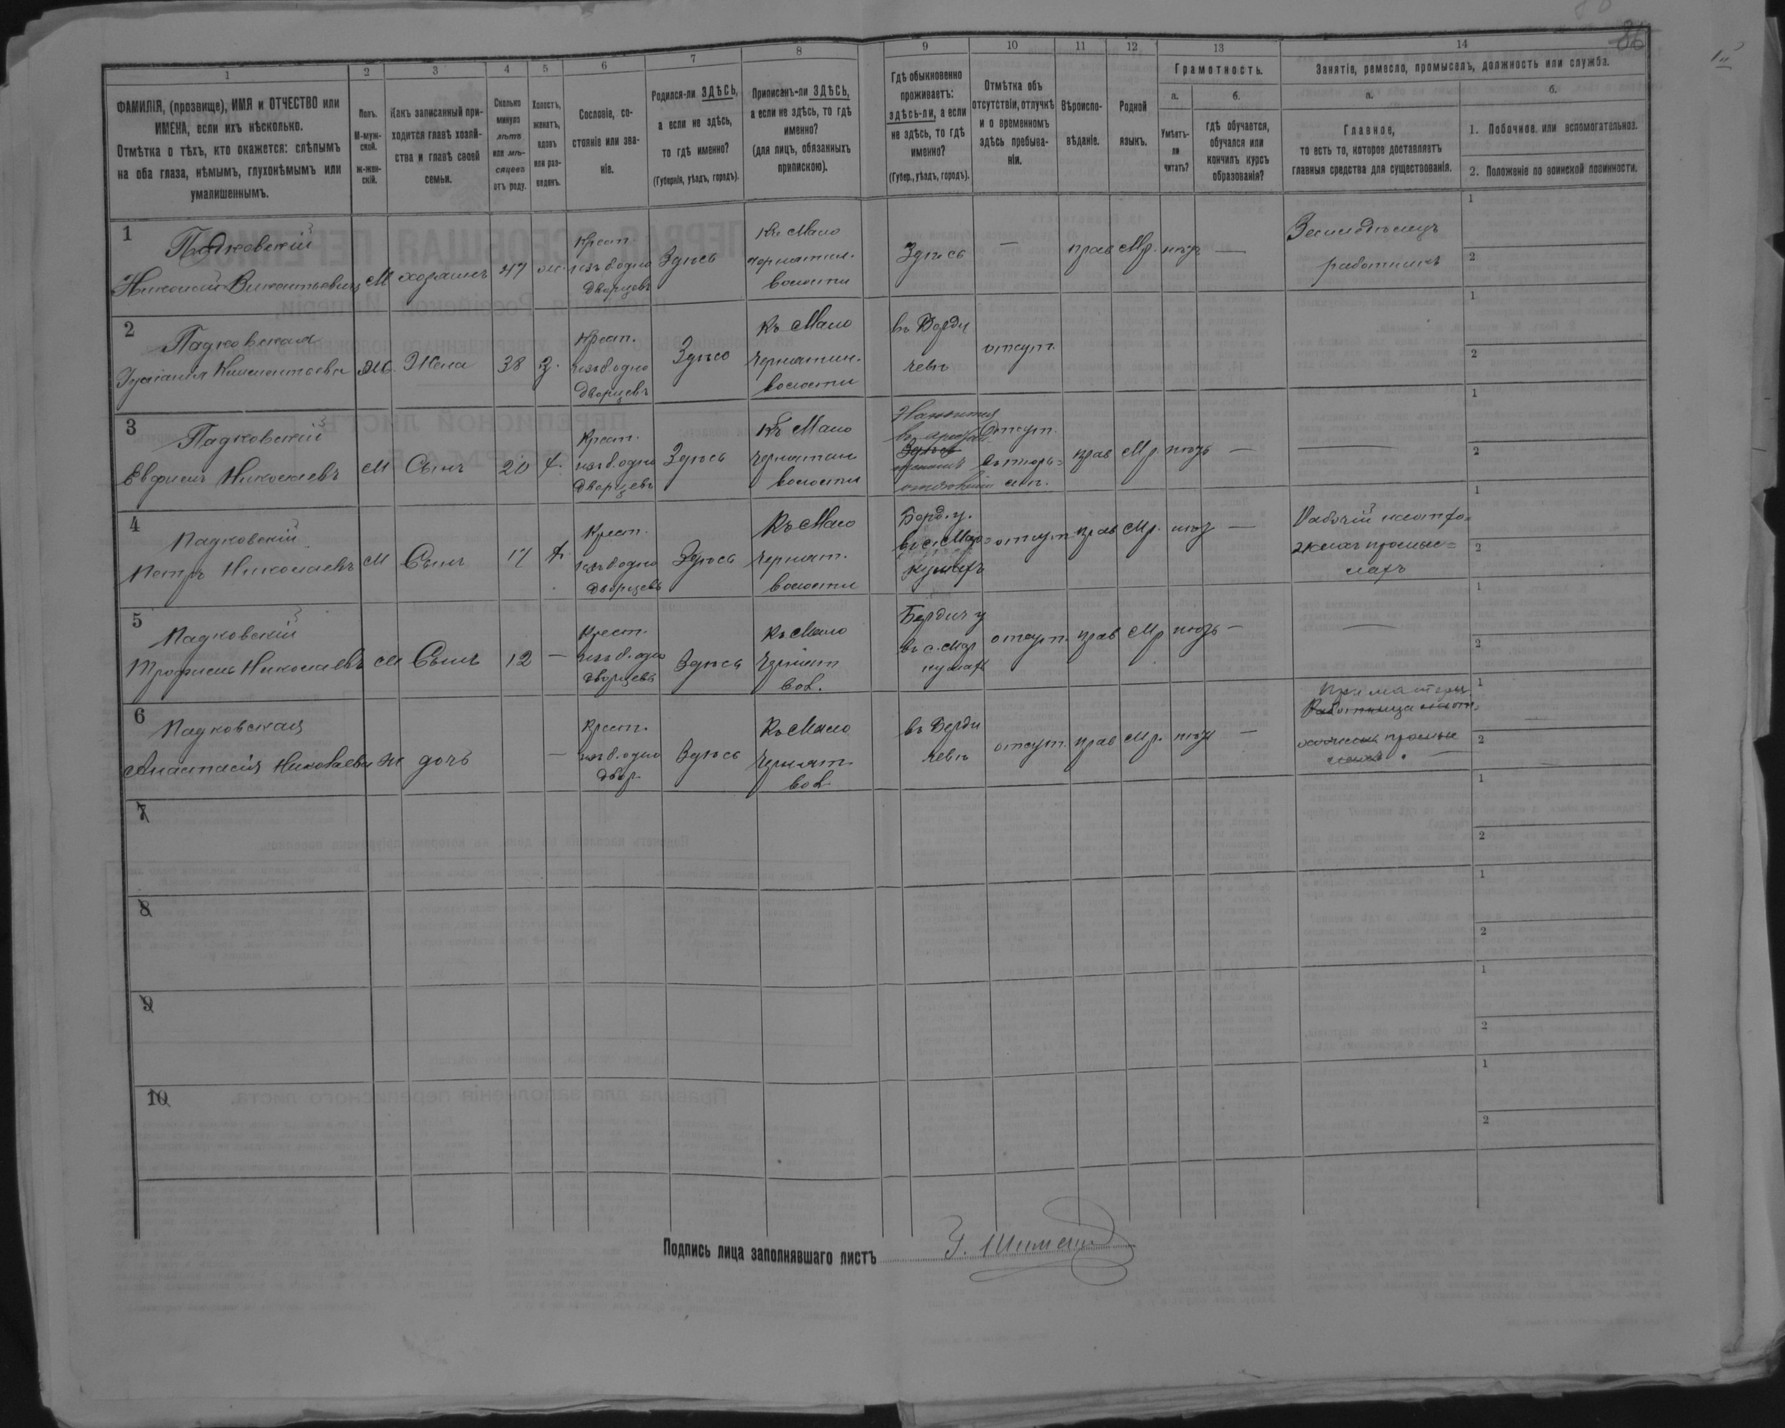 86
1
2
3
4
5
6
7
8
9
10
11
12
13
14
ФАМИЛІЯ, (прозвище), ИМЯ и ОТЧЕСТВО или
ИМЕНА, если ихъ нѣсколько.
Отмѣтка о тѣхъ, кто окажется: слѣпымъ
на оба глаза, нѣмымъ, глухонѣмымъ или
умалишеннымъ.
Полъ.
М-муж-
ской.
Ж-жен-
скій.
Какъ записанный при-
ходится главѣ хозяй-
ства и главѣ своей
семьи.
Сколько
минуло
лѣтъ
или мѣ-
сяцевъ
отъ роду.
Холостъ,
женатъ,
вдовъ
или раз-
веденъ.
Сословіе, со-
стояніе или зва-
ніе.
Родился-ли ЗДѢСЬ,
а если не здѣсь,
то гдѣ именно?
(Губернія, уѣздъ, городъ).
Приписанъ-ли ЗДѢСЬ,
а если не здѣсь, то гдѣ
именно?
(для лицъ, обязанныхъ
припискою).
Гдѣ обыкновенно
проживаетъ:
здѣсь-ли, а если
не здѣсь, то гдѣ
именно?
(Губер., уѣздъ, городъ).
Отмѣтка объ
отсутствіи, отлучкѣ
и о временномъ
здѣсь пребыва-
ніи.
Вѣроиспо-
вѣданіе.
Родной
языкъ.
Грамотность.
а.
Умѣетъ-
ли
читать?
б.
гдѣ обучается,
обучался или
кончилъ курсъ
образованія?
Занятіе, ремесло, промыселъ, должность или служба.
а.
Главное,
то есть то, которое доставляетъ
главныя средства для существованія.
б.
1. Побочное или вспомогательное.
2. Положеніе по воинской повинности.
1
Падковскій
Николай Викентьевичъ М хозяинъ 47 ж.
Крест.
изъ б. одно
дворцевъ
Здѣсь
Къ Мало
чернятин.
волости
Здѣсь
—
прав Мр. нѣтъ —
Земледѣлецъ
работникъ
1
2
2
Падковская
Климентьевна Ж. Жена 38 З.
Крест.
изъ б. одно
дворцевъ
Здѣсь
Къ Мало
Чернятин.
волости
въ Берди
чевѣ
отсут.
1
2
3
Падковскій
Ефимъ Николаевъ М Сынъ 20 Х.
Крест.
изъ б. одно
дворцевъ
Здѣсь
Къ Мало
Чернятин
волости
Здѣсь
Отсут.
прав Мр. нѣтъ —
1
2
4
Падковскій
Петръ Николаевъ М Сынъ 17 Х.
Крест.
изъ б. одно
дворцевъ
Здѣсь
Къ Мало
Чернят.
волости
Берд. у.
отсут прав Мр. нѣт —
1
2
5
Падковскій
Трофимъ Николаевъ М Сынъ 12 —
Крест.
изъ б. одно
дворцевъ
Здѣсь
Къ Мало
Чернят
вол.
Бердич у
отсут. прав Мр нѣтъ —
1
2
6
Падковская
Анастасія Николаевна Ж дочь
—
Крест.
изъ б. одно
двор.
Здѣсь
Къ Мало
Чернят.
вол.
въ Берди
чевѣ
отсут. прав Мр. нѣтъ —
При матери
1
2
7
1
2
8
1
2
9
1
2
10
1
2
Подпись лица заполнявшаго листъ